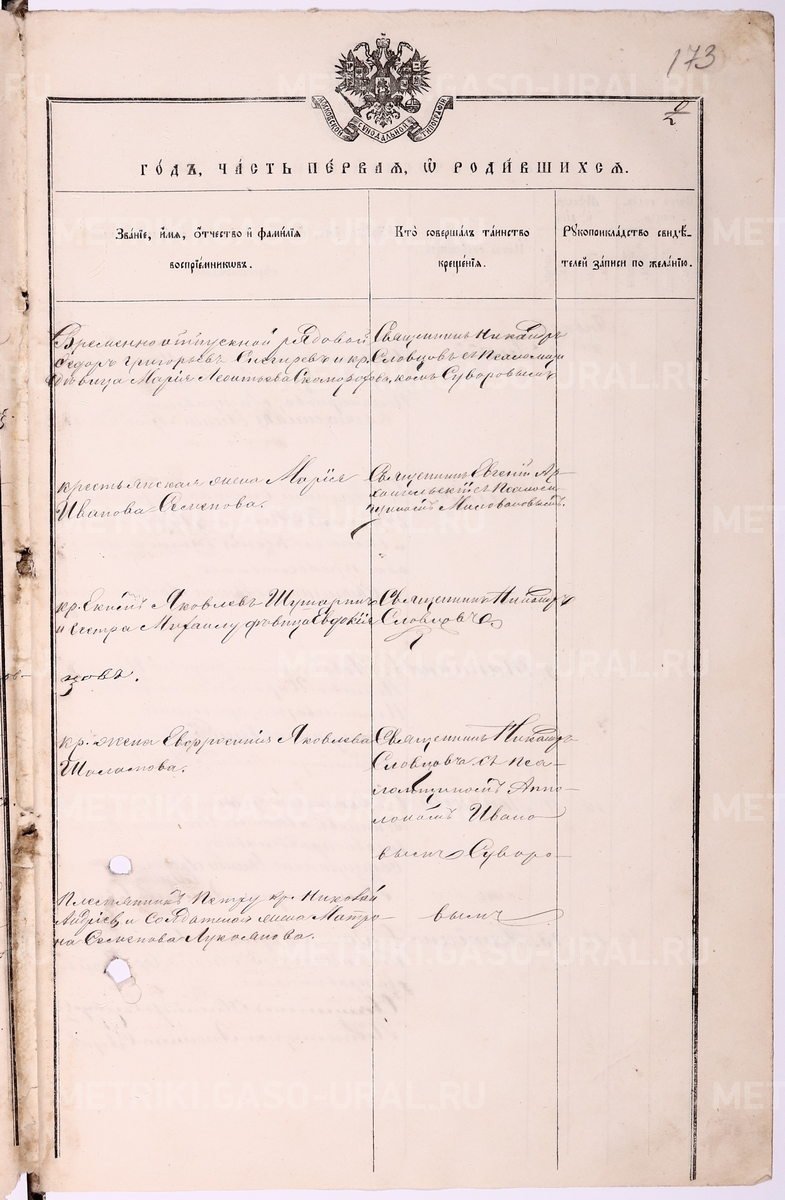 173
МОСКОВСКОЙ СѴНОДАЛЬНОЙ ТИПОГРАФІИ
ГО́ДЪ, ЧА́СТЬ ПЕ́РВАЯ, Ѡ҆ РОДИ́ВШИХСЯ.
Зва́нїе, и҆́мя, ѻ҆́тчество и҆ фами́лїя
воспрїе́мникѡвъ.
Кто̀ соверша́лъ та́инство
креще́нїя.
Рꙋкоприкла́дство свидѣ́-
телей за́писи по жела́нїю.
Временно отпускной рядовой
Федоръ Григорьевъ Снегиревъ и кр.
девица Марія Леонтьева Скоморохова
Священникъ Никандръ
Словцовъ съ псаломщи
комъ Суворовымъ
крестьянская жена Марія
Иванова Семенова.
Священникъ Евгеній Ар-
хангельскій съ псалом
щикомъ Миловановымъ.
кр. Екимъ Яковлевъ Шутаринъ
и сестра Михаилу девица Евдокія
Священникъ Никандръ
Словцовъ
кр. жена Евфросинія Яковлева
Шаламова.
Священникъ Никандръ
Словцовъ съ пса-
ломщикомъ Аппо-
лономъ Ивано
вымъ Суворо-
вымъ
Племянникъ Петру кр. Николай
Андріевъ и солдатская жена Матро-
на Семенова Лукоянова.
METRIKI.GASO-URAL.RU